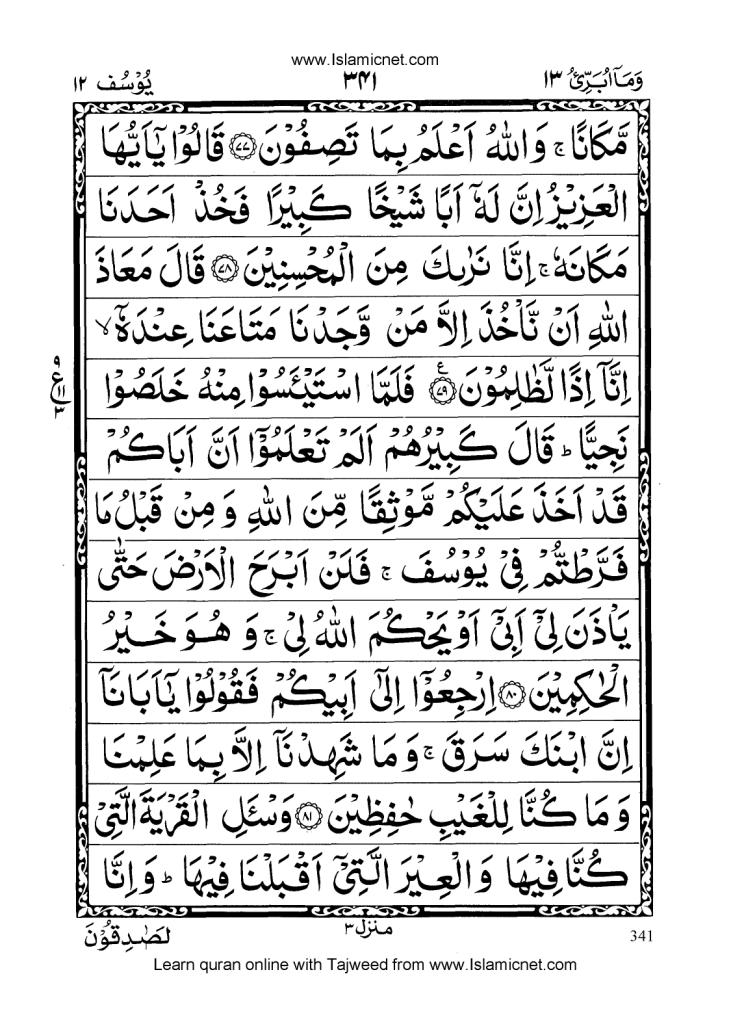 www.Islamicnet.com
وَمَآ اُبَرِّئُ ١٣ ٣٤١ يُوْسُف ١٢
مَّكَانًا ۚ وَاللّٰهُ اَعْلَمُ بِمَا تَصِفُوْنَ ﴿٧٧﴾ قَالُوْا يٰۤاَيُّهَا
الْعَزِيْزُ اِنَّ لَهٗۤ اَبًا شَيْخًا كَبِيْرًا فَخُذْ اَحَدَنَا
مَكَانَهٗ ۚ اِنَّا نَرٰىكَ مِنَ الْمُحْسِنِيْنَ ﴿٧٨﴾ قَالَ مَعَاذَ
اللّٰهِ اَنْ نَّاْخُذَ اِلَّا مَنْ وَّجَدْنَا مَتَاعَنَا عِنْدَهٗۤ ۙ
اِنَّاۤ اِذًا لَّظٰلِمُوْنَ ﴿٧٩﴾ ع فَلَمَّا اسْتَيْـَٔسُوْا مِنْهُ خَلَصُوْا
٩
ع ١١
٣
نَجِيًّا ؕ قَالَ كَبِيْرُهُمْ اَلَمْ تَعْلَمُوْۤا اَنَّ اَبَاكُمْ
قَدْ اَخَذَ عَلَيْكُمْ مَّوْثِقًا مِّنَ اللّٰهِ وَمِنْ قَبْلُ مَا
فَرَّطْتُّمْ فِيْ يُوْسُفَ ۚ فَلَنْ اَبْرَحَ الْاَرْضَ حَتّٰى
يَاْذَنَ لِيْۤ اَبِيْۤ اَوْ يَحْكُمَ اللّٰهُ لِيْ ۚ وَهُوَ خَيْرُ
الْحٰكِمِيْنَ ﴿٨٠﴾ اِرْجِعُوْۤا اِلٰۤى اَبِيْكُمْ فَقُوْلُوْا يٰۤاَبَانَاۤ
اِنَّ ابْنَكَ سَرَقَ ۚ وَمَا شَهِدْنَاۤ اِلَّا بِمَا عَلِمْنَا
وَمَا كُنَّا لِلْغَيْبِ حٰفِظِيْنَ ﴿٨١﴾ وَسْـَٔلِ الْقَرْيَةَ الَّتِيْ
كُنَّا فِيْهَا وَالْعِيْرَ الَّتِيْۤ اَقْبَلْنَا فِيْهَا ؕ وَاِنَّا
لَصٰدِقُوْنَ منزل ٣ 341
Learn quran online with Tajweed from www.Islamicnet.com